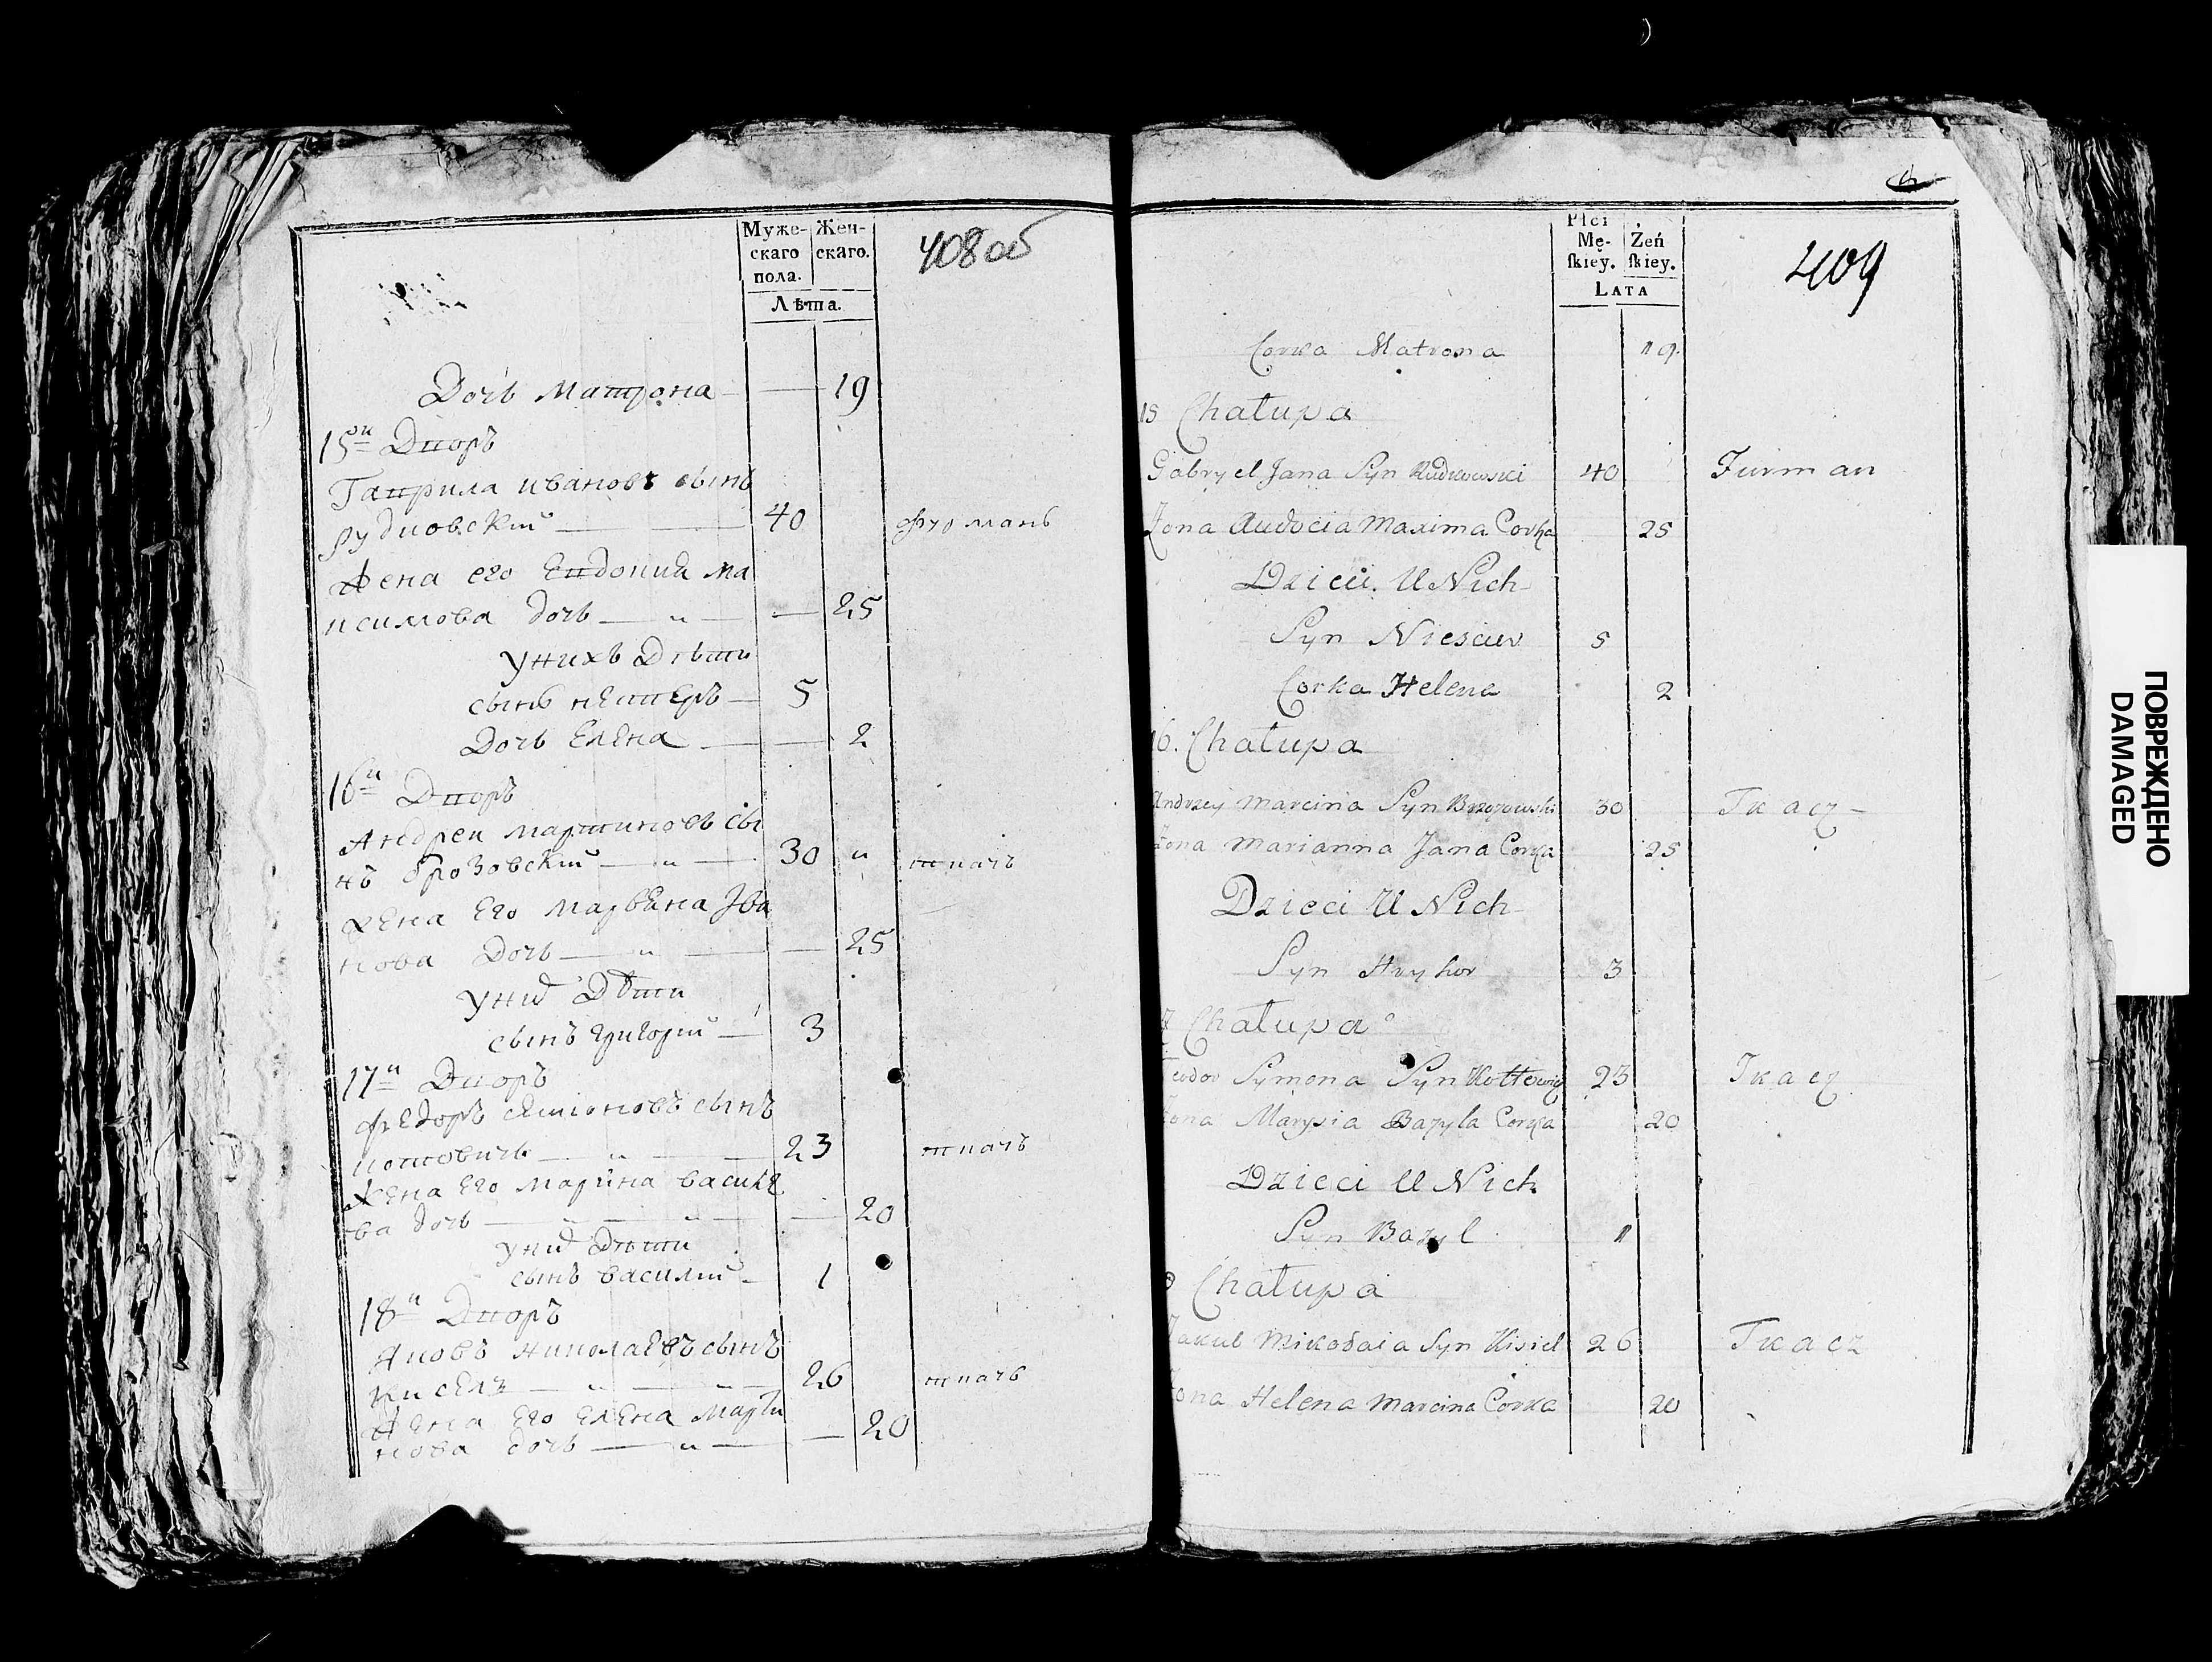 Муже-
скаго
пола.
Жен-
скаго.
Лѣта.
408 об
Дочь Матрона 19
15й Дворъ
Гаврила Ивановъ сынъ
Рудковский 40 фурманъ
Жена его Евдокия Ма
ксимова дочь 25
У нихъ Дѣти
сынъ Нестеръ 5
Дочь Елена 2
16й Дворъ
Андреи Мартиновъ сы
нъ Брозовский 30 ткачъ
Жена Его Марьяна Ива
нова Дочь 25
У них Дѣти
сынъ Григорий 3
17й Дворъ
Федоръ Семионовъ сынъ
23 ткачъ
Жена Его Марина Василе
ва дочь 20
У них Дѣти
сынъ Василий 1
18й Дворъ
Яковъ Николаевъ сынъ
Киселъ 26 ткачъ
Жена Его Елена Марти
нова дочь 20
Płci
Mę-
skiey.
Żeń
skiey.
LATA
409
Corka Matrona 19
15 Chałupa
Gabryel Jana Syn Rudkowski 40 Furman
Zona Audocia Maxima Corka 25
Dzieci U Nich
Syn 5
Corka Helena 2
16. Chałupa
Andrzey Marcina Syn Brzozowski 30 Tkacz
Zona Marianna Jana Corka 25
Dzieci U Nich
Syn Hryhor 3
Chałupa
Symona Syn 23 Tkacz
Zona Marysia Bazyla Corka 20
Dzieci U Nich
Syn Bazyl 1
Chałupa
Jakub Mikołaia Syn Kisiel 26 Tkacz
Zona Helena Marcina Corka 20
ПОВРЕЖДЕНО
DAMAGED